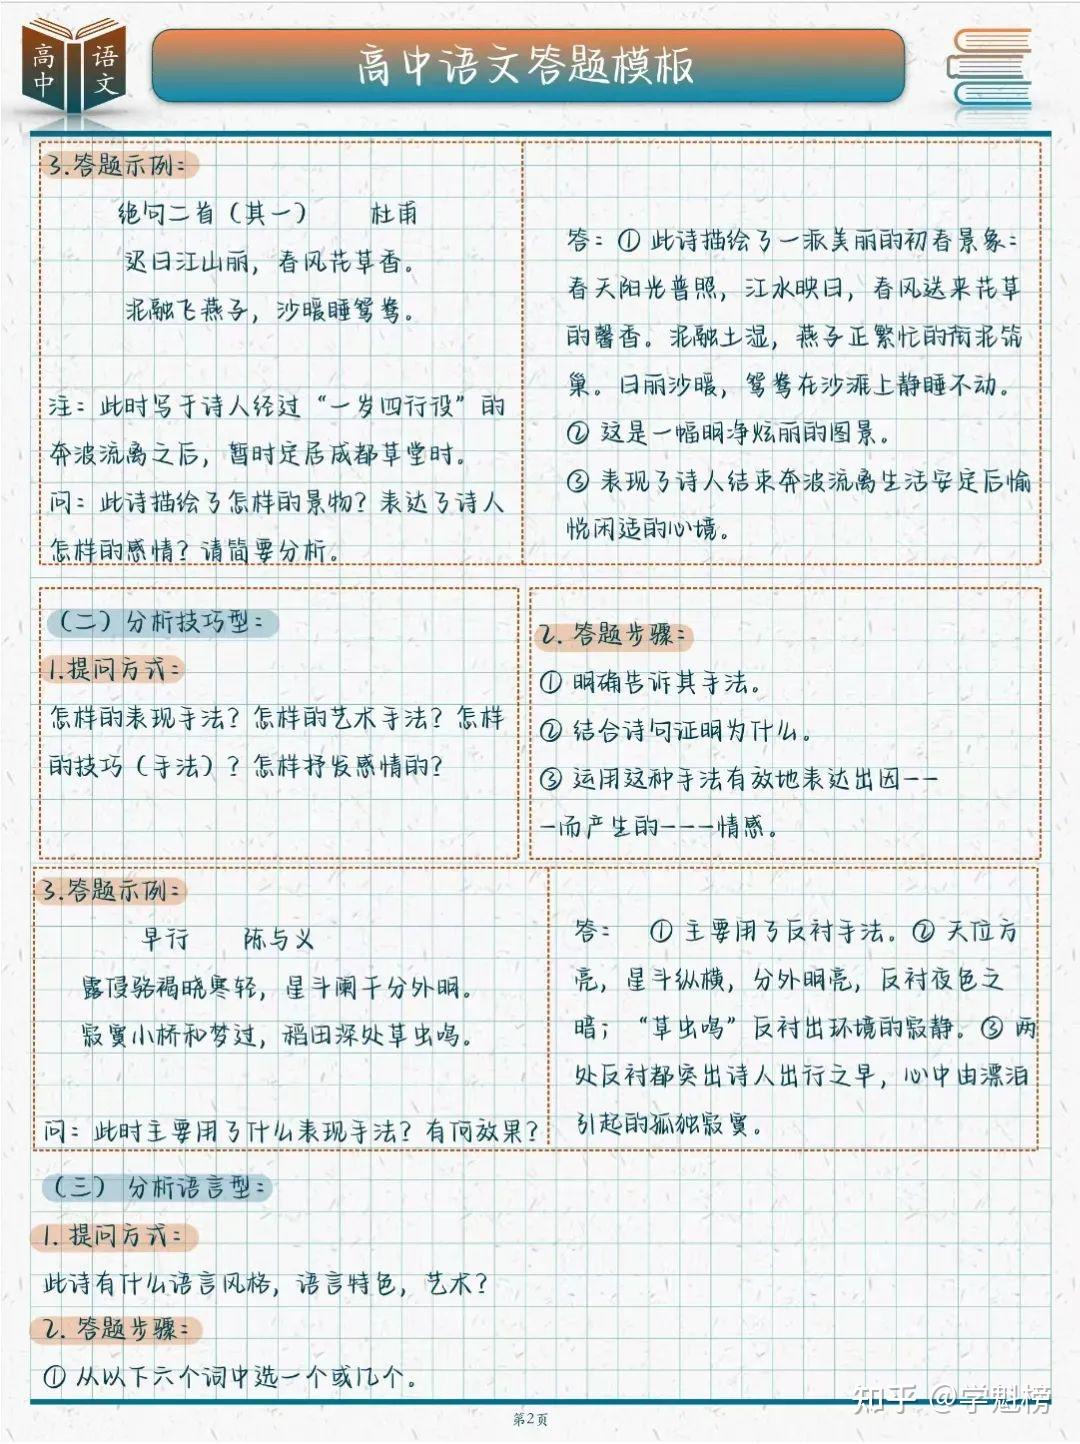 高中
语文
高中语文答题模板
3.答题示例:
绝句二首（其一） 杜甫
迟日江山丽，春风花草香。
泥融飞燕子，沙暖睡鸳鸯。
注：此时写于诗人经过“一岁四行役”的
奔波流离之后，暂时定居成都草堂时。
问：此诗描绘了怎样的景物？表达了诗人
怎样的感情？请简要分析。
答：① 此诗描绘了一派美丽的初春景象：
春天阳光普照，江水映日，春风送来花草
的馨香。泥融土湿，燕子正繁忙的衔泥筑
巢。日丽沙暖，鸳鸯在沙滩上静睡不动。
② 这是一幅明净炫丽的图景。
③ 表现了诗人结束奔波流离生活安定后愉
悦闲适的心境。
（二）分析技巧型：
1.提问方式：
怎样的表现手法？怎样的艺术手法？怎样
的技巧（手法）？怎样抒发感情的？
2. 答题步骤：
① 明确告诉其手法。
② 结合诗句证明为什么。
③ 运用这种手法有效地表达出因--
-而产生的---情感。
3.答题示例：
早行 陈与义
露侵骆褐晓寒轻，星斗阑干分外明。
寂寞小桥和梦过，稻田深处草虫鸣。
问：此时主要用了什么表现手法？有何效果？
答： ① 主要用了反衬手法。② 天位方
亮，星斗纵横，分外明亮，反衬夜色之
暗；“草虫鸣”反衬出环境的寂静。③ 两
处反衬都突出诗人出行之早，心中由漂泊
引起的孤独寂寞。
（三） 分析语言型：
1. 提问方式：
此诗有什么语言风格，语言特色，艺术？
2. 答题步骤：
① 从以下六个词中选一个或几个。
知乎 @学魁榜
第2页